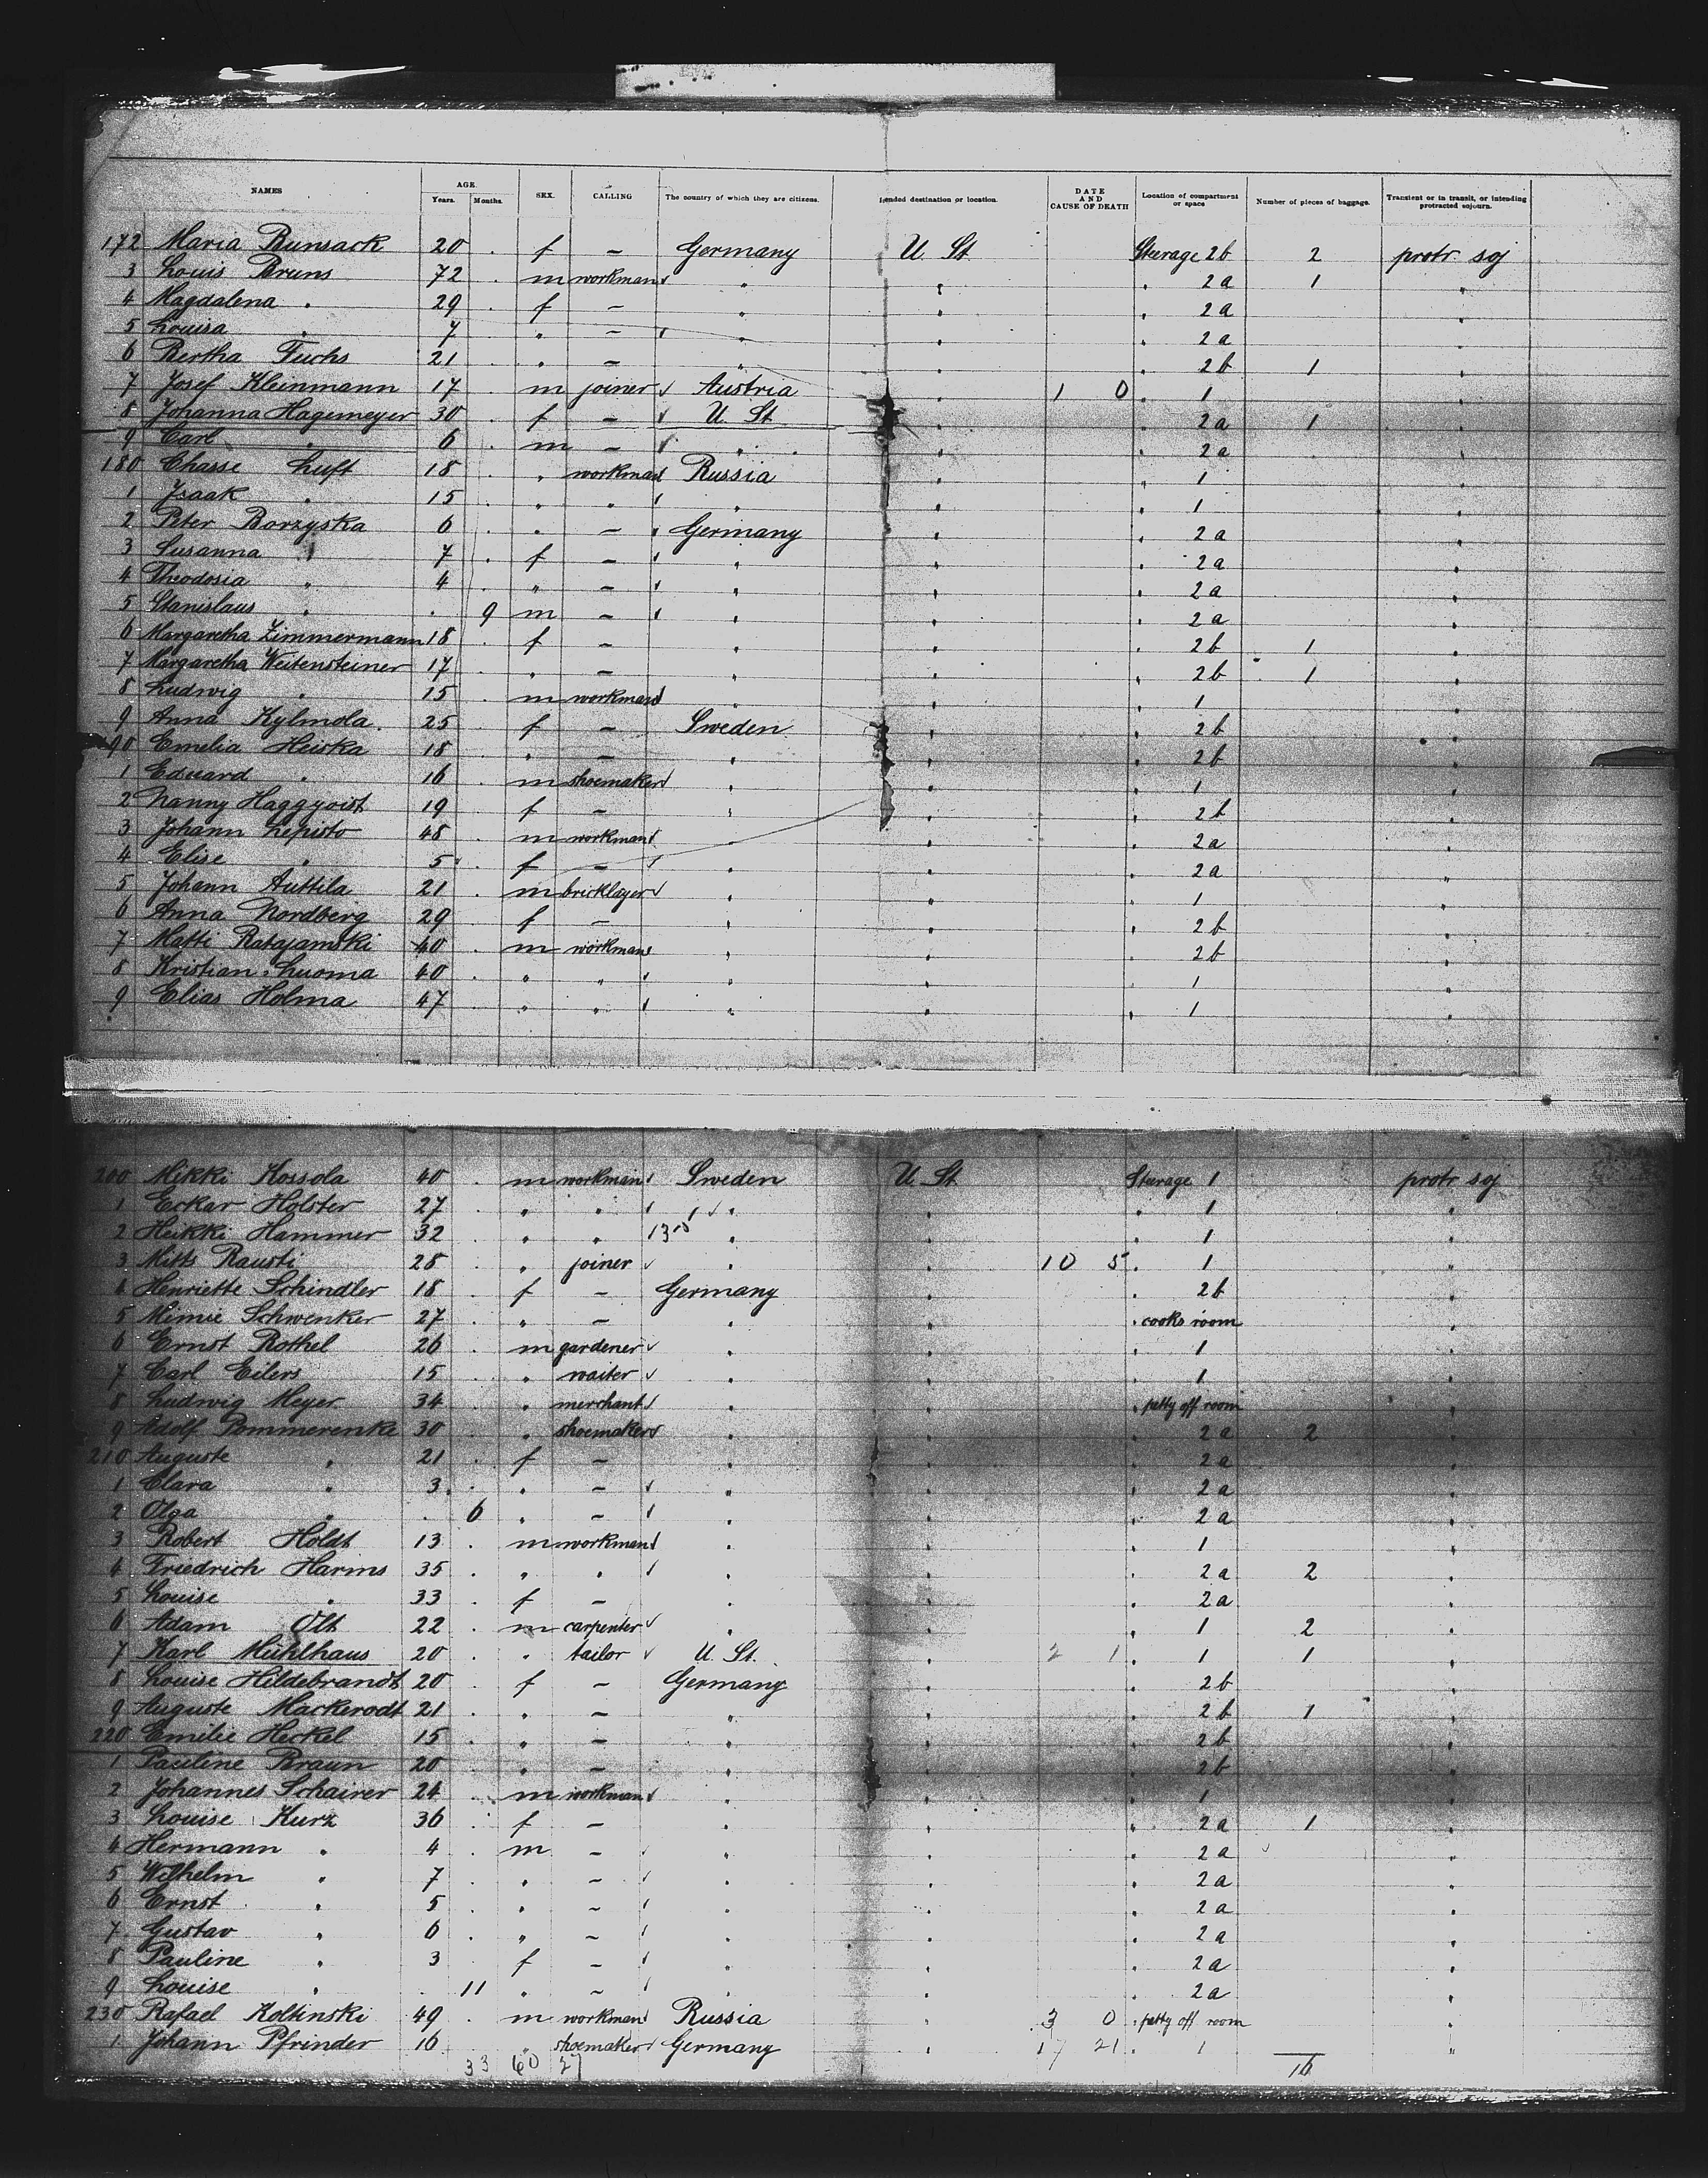 NAMES AGE. Years. Months. SEX. CALLING The country of which they are citizens. Intended destination or location. DATE AND CAUSE OF DEATH Location of compartment or space Number of pieces of baggage. Transient or in transit, or intending protracted sojourn.
172 Maria Bunsack 20 . f – Germany U. St. Steerage 2b 2 protr soj
3 Louis Bruns 72 . m workman " " " 2a 1 "
4 Magdalena " 29 . f – " " " 2a "
5 Louisa " 7 . " – " " " 2a "
6 Bertha Fuchs 21 . " – " " " 2b 1 "
7 Josef Kleinmann 17 . m joiner Austria " 1 0 " 1 "
8 Johanna Hagemeyer 30 . f – U. St. " " 2a 1 "
9 Carl " 6 . m – " " " 2a "
180 Chasse Luft 18 . " workman Russia " " 1 "
1 Isaak " 15 . " " " " " 1 "
2 Peter Borzyska 6 . " – Germany " " 2a "
3 Susanna " 7 . f – " " " 2a "
4 Theodosia " 4 . " – " " " 2a "
5 Stanislaus " . 9 m – " " " 2a "
6 Margaretha Zimmermann 18 . f – " " " 2b 1 "
7 Margaretha Weitensteiner 17 . " – " " " 2b 1 "
8 Ludwig " 15 . m workman " " " 1 "
9 Anna Kylmola 25 . f – Sweden " " 2b "
90 Emelia Heiska 18 . " – " " " 2b "
1 Eduard " 16 . m shoemaker " " " 1 "
2 Nanny Haggqvist 19 . f – " " " 2b "
3 Johann Lepisto 48 . m workman " " " 2a "
4 Elise " 5 . f – " " " 2a "
5 Johann Auttila 21 . m bricklayer " " " 1 "
6 Anna Nordberg 29 . f – " " " 2b "
7 Matti Ratajamski 40 . m workman " " " 2b "
8 Kristian Luoma 40 . " " " " " 1 "
9 Elias Holma 47 " " " " " 1 "
200 Mikki Kossola 40 . m workman Sweden U. St. Steerage 1 protr soj
1 Eckar Holster 27 . " " " " " 1 "
2 Heikki Hammer 32 . " " " " " 1 "
3 Mitts Rausti 28 . " joiner " " 10 5 " 1 "
4 Henriette Schindler 18 . f – Germany " " 2b "
5 Mimie Schwenker 27 . " – " " " cooks room "
6 Ernst Rothel 26 . m gardener " " " 1 "
7 Carl Eilers 15 . " waiter " " " 1 "
8 Ludwig Meyer 34 . " merchant " " " petty off room "
9 Adolf Pommerenke 30 . " shoemaker " " " 2a 2 "
210 Auguste " 21 . f – " " " 2a "
1 Clara " 3 . " – " " " 2a "
2 Olga " . 6 " – " " " 2a "
3 Robert Holdt 13 . m workman " " " 1 "
4 Friedrich Harms 35 . " " " " " 2a 2 "
5 Louise " 33 . f – " " " 2a "
6 Adam Olt 22 . m carpenter " " " 1 2 "
7 Karl Mühlhaus 20 . " tailor U. St. " 2 1 " 1 1 "
8 Louise Hildebrandt 20 . f – Germany " " 2b "
9 Auguste Mackerodt 21 . " – " " " 2b 1 "
220 Emilie Heckel 15 . " – " " " 2b "
1 Pauline Braun 20 . " – " " " 2b "
2 Johannes Schairer 24 . m workman " " " 1 "
3 Louise Kurz 36 . f – " " " 2a 1 "
4 Hermann " 4 . m – " " " 2a "
5 Wilhelm " 7 . " – " " " 2a "
6 Ernst " 5 . " – " " " 2a "
7 Gustav " 6 . " – " " " 2a "
8 Pauline " 3 . f – " " " 2a "
9 Louise " . 11 " – " " " 2a "
230 Rafael Koltinski 49 . m workman Russia " 3 0 " petty off room "
1 Johann Pfrinder 16 . " shoemaker Germany " 17 21 " 1 "
33 60 27 16